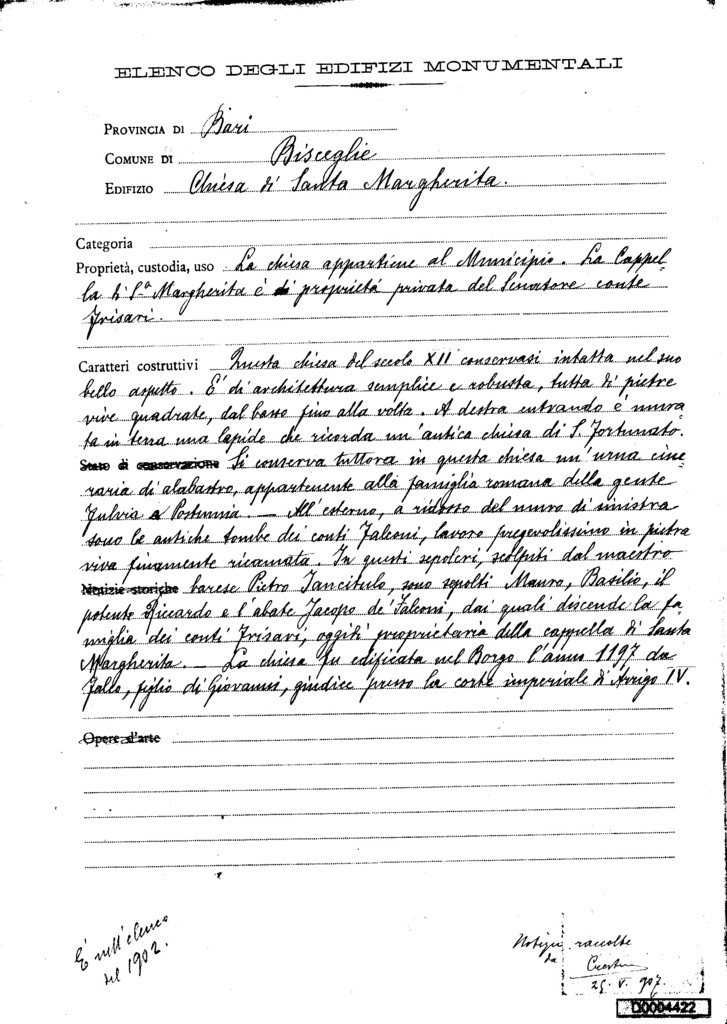 ELENCO DEGLI EDIFIZI MONUMENTALI
PROVINCIA DI Bari
COMUNE DI Bisceglie
EDIFIZIO Chiesa di Santa Margherita.
Categoria
Proprietà, custodia, uso La chiesa appartiene al Municipio. La Cappel-
la di S.ª Margherita è di proprietà privata del Senatore conte
Frisari.
Caratteri costruttivi Questa chiesa del secolo XII conservasi intatta nel suo
bello aspetto. È di architettura semplice e robusta, tutta di pietre
vive quadrate, dal basso fino alla volta. A destra entrando è mura-
ta in terra una lapide che ricorda un'antica chiesa di S. Fortunato.
Stato di conservazione Si conserva tuttora in questa chiesa un'urna cine-
raria di alabastro, appartenente alla famiglia romana della gente
Fulvia Postumia. — All'esterno, a ridosso del muro di sinistra
sono le antiche tombe dei conti Falconi, lavoro pregevolissimo in pietra
viva finamente ricamata. In questi sepolcri, scolpiti dal maestro
Notizie storiche barese Pietro Facitulo, sono sepolti Mauro, Basilio, il
potente Riccardo e l'abate Jacopo de' Falconi, dai quali discende la fa-
miglia dei conti Frisari, oggidì proprietaria della cappella di Santa
Margherita. — La chiesa fu edificata nel Borgo l'anno 1197 da
Fallo, figlio di Giovanni, giudice presso la corte imperiale di Arrigo IV.
Opere d'arte
È nell'elenco
del 1902.
Notizie raccolte
da
25. V. 907.
D0004422